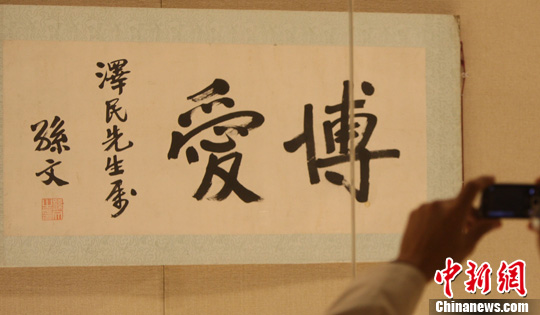 博愛
澤民先生属
孫文
中新網
Chinanews.com